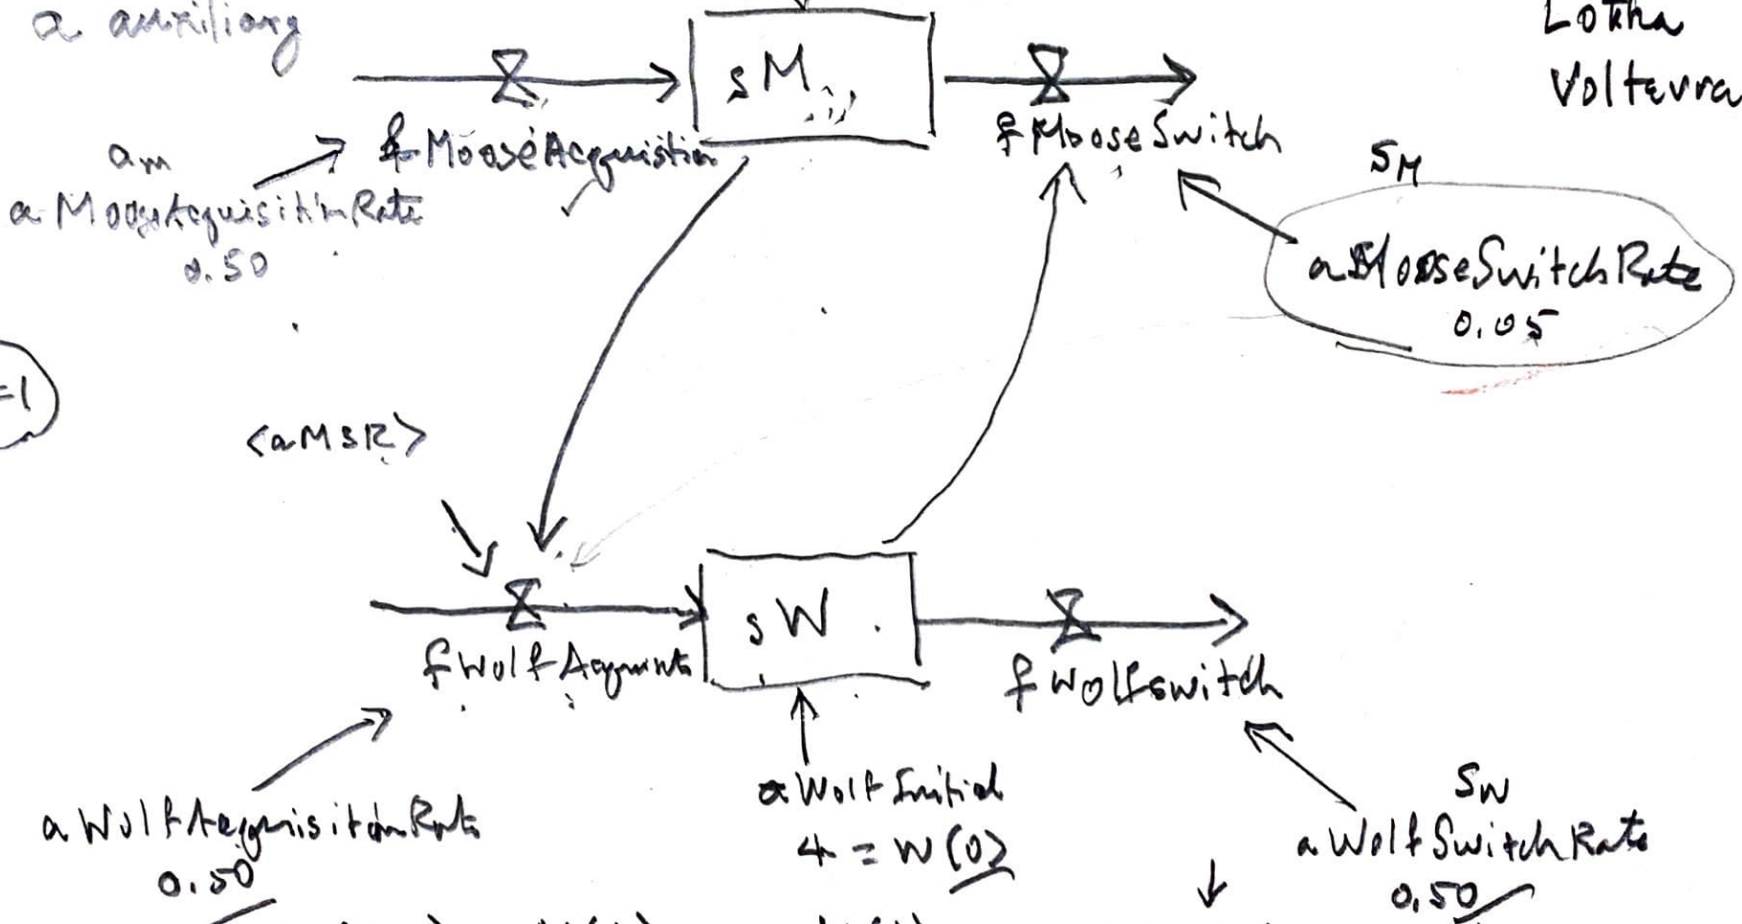 a auxiliary
Lotka
Volterra
sM
fMooseAcquisition
fMooseSwitch
am
aMooseAcquisitionRate
0.50
SM
aMooseSwitchRate
0.05
=1
<aMSR>
sW
fWolfAcquisiti
fWolfswitch
aWolfAcquisitionRate
0.50
aWolfInitial
4 = W(0)
SW
aWolfSwitchRate
0.50